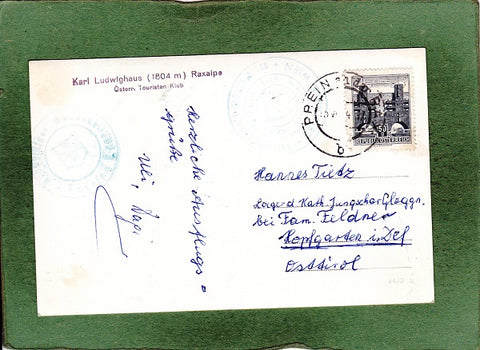 Karl Ludwighaus (1804 m) Raxalpe
Österr. Touristen Klub
Herzliche Ausflugs
grüße
PREIN
b
1.50
REPUBLIK ÖSTERREICH
Hannes Tietz
Lager d. Kath. Jungschar Gloggn.
bei Fam. Feldner
Hopfgarten i. Def
Osttirol